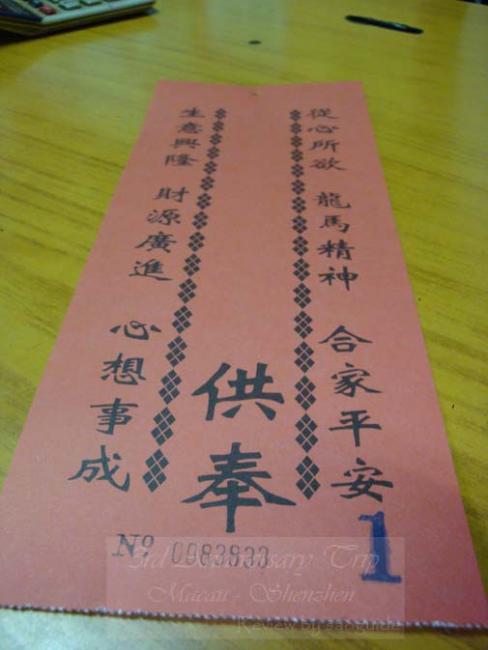 從心所欲 龍馬精神 合家平安
供奉
生意興隆 財源廣進 心想事成
Nº 0083833
1
3rd Anniversary Trip
Macau - Shenzhen